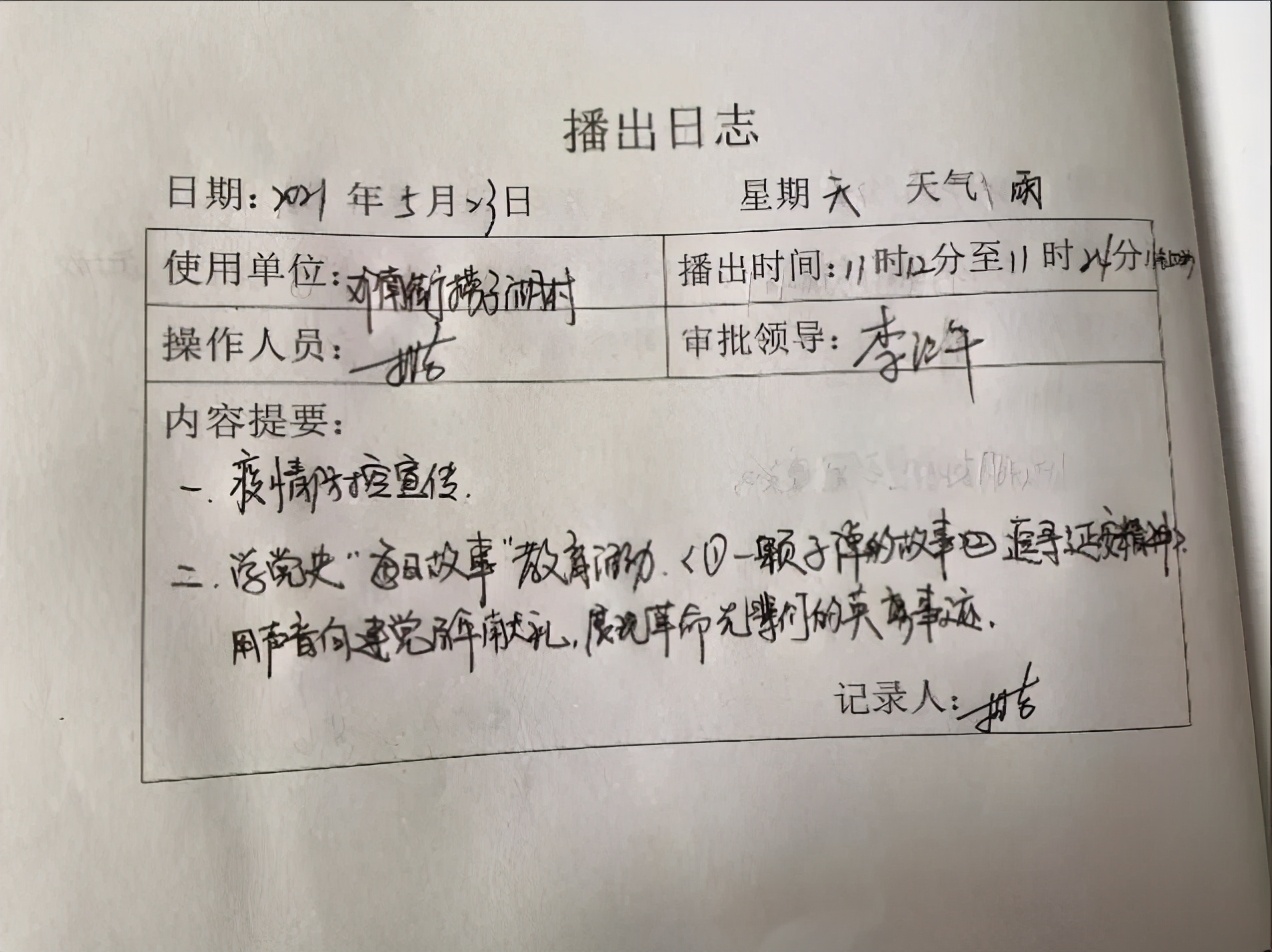 播出日志
日期:2021年5月23日 星期天 天气 雨
使用单位: 南街 子湖村 播出时间:11时12分至11时24分
操作人员: 审批领导:李
内容提要:
一.疫情防控宣传.
二.学党史"每日故事"教育活动.<①一颗子弹的故事② 追寻延安精神>.
用声音向建党百年献礼,展现革命先辈们的英勇事迹.
记录人: